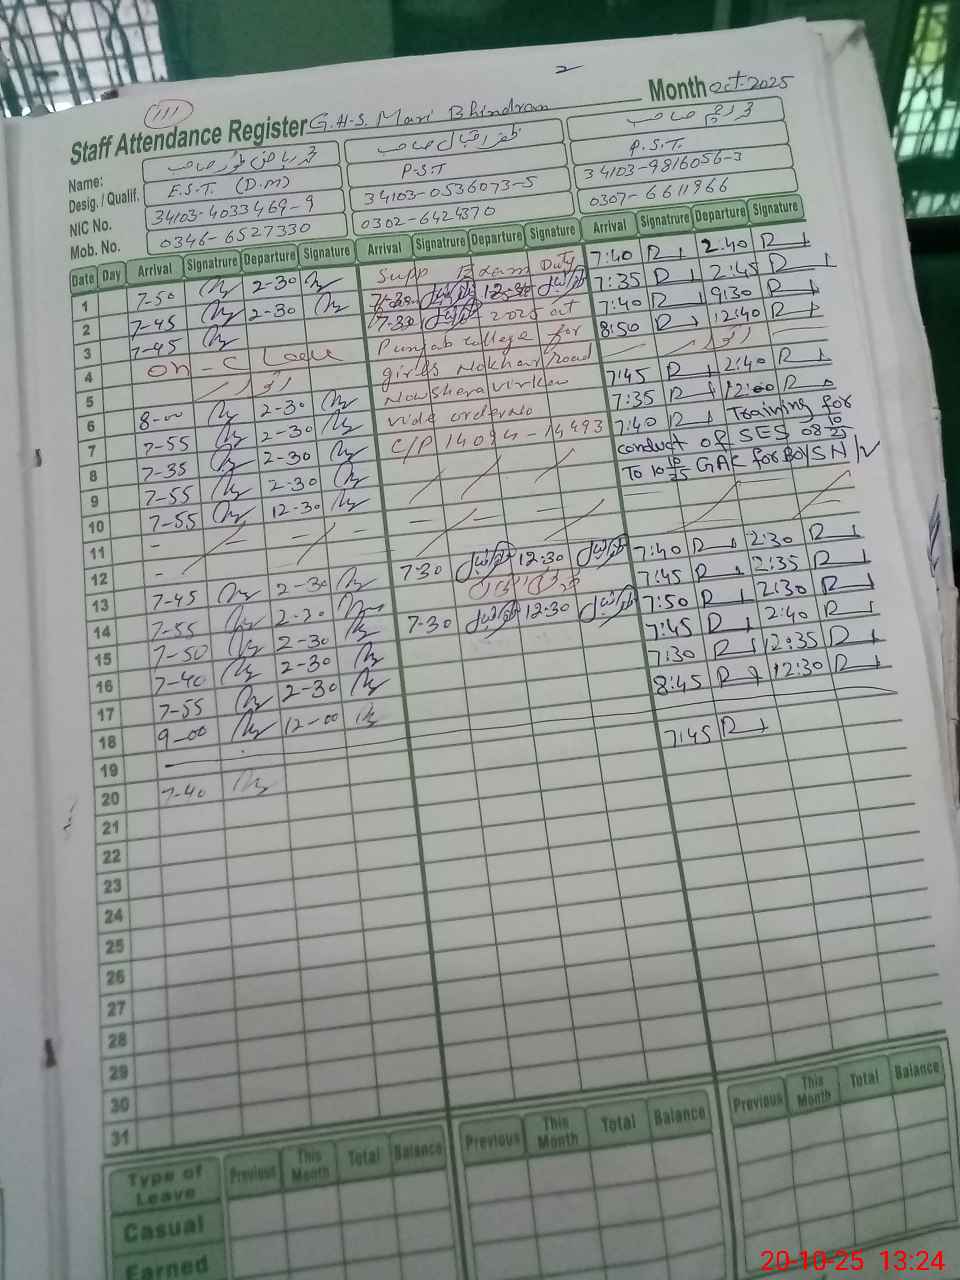 2
111
Staff Attendance Register G.H.S. Mari Bhindran Month oct-2025
Name: محمد ریاض صاحب ظفر اقبال صاحب صاحب
Desig. / Qualif. E.S.T. (D.M) P.S.T P.S.T.
NIC No. 34103-4033469-9 34103-0536073-5 34103-9816056-3
Mob. No. 0346-6527330 0302-6424370 0307-6611966
Date Day Arrival Signatrure Departure Signature Arrival Signatrure Departure Signature Arrival Signatrure Departure Signature
1 7-50 2-30 Supp Exam Duty 7:40 2:40
2 7-45 2-30 7-30 12-30 7:35 2:45
3 7-45 7-30 2025 at 7:40 9:30
4 on - C Leave Punjab College for 8:50 12:40
5 اتوار girls Nokhar road اتوار
6 8-00 2-30 Nowshera virkan 7:45 2:40
7 7-55 2-30 vide order No 7:35 12:00
8 7-35 2-30 C/P 14094-14493 7:40 Training for
9 7-55 2-30 conduct of SES 08 10/25
10 7-55 12-30 To 10 10/25 GAC for BOYS N/V
11
12
13 7-45 2-30 7-30 12:30 7:40 2:30
14 7-55 2-30 7:45 2:35
15 7-50 2-30 7-30 12:30 7:50 2:30
16 7-40 2-30 7:45 2:40
17 7-55 2-30 7:30 12:35
18 9-00 12-00 8:45 12:30
19
20 7-40 7:45
21
22
23
24
25
26
27
28
29
30
31
Type of Leave Previous This Month Total Balance Previous This Month Total Balance Previous This Month Total Balance
Casual
Earned
20-10-25 13:24